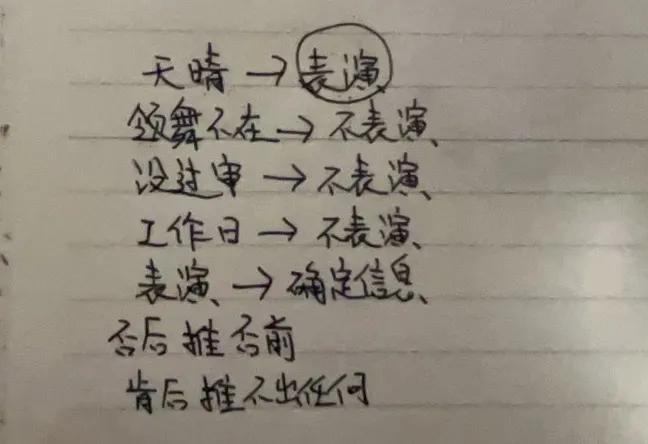 天晴→表演
领舞不在→不表演
没过审→不表演
工作日→不表演
表演→确定信息
否后推否前
肯后推不出任何